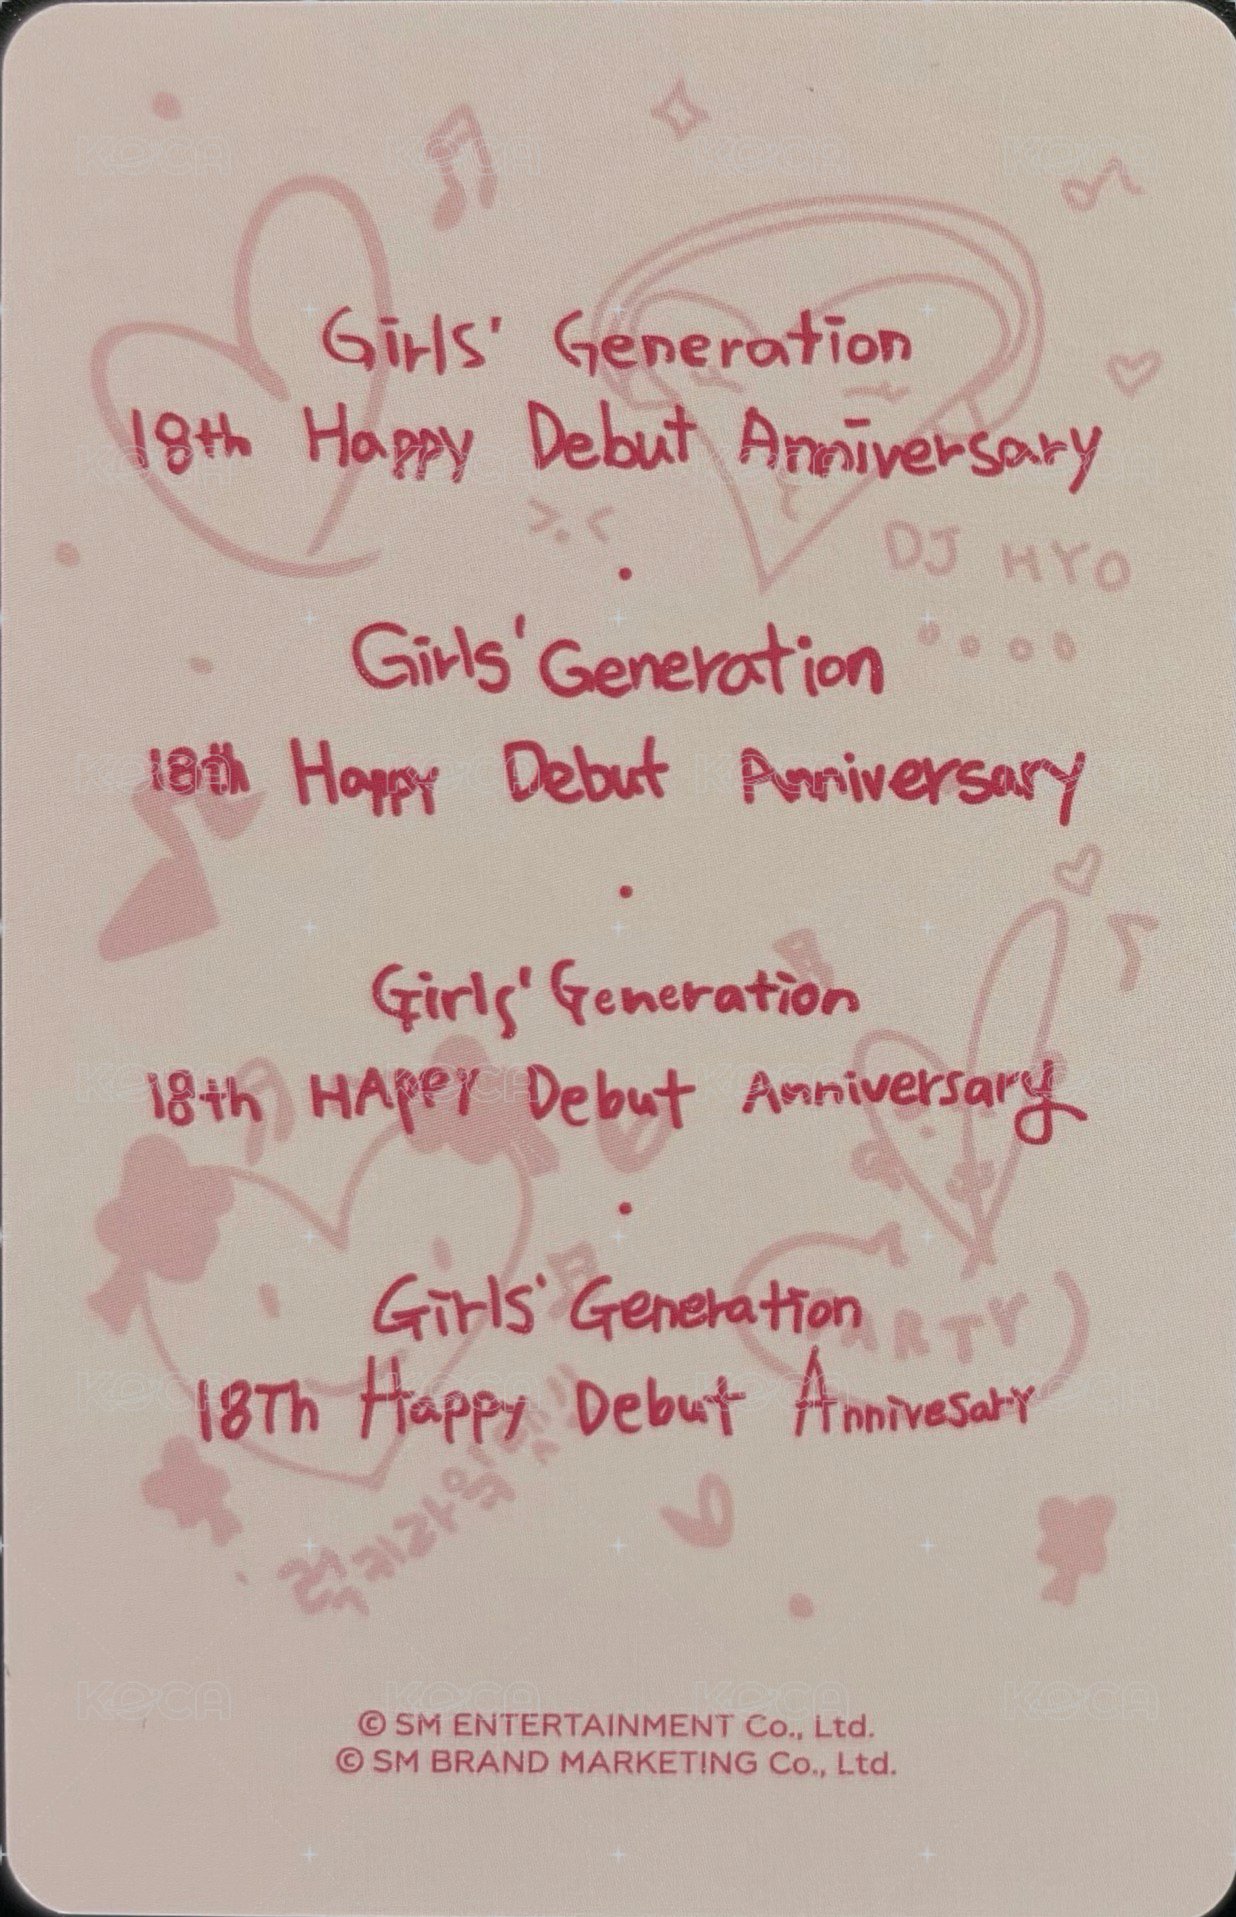 Girls' Generation
18th Happy Debut Anniversary
>.<
DJ HYO
Girls' Generation
18th Happy Debut Anniversary
Girls' Generation
18th HAppy Debut Anniversary
PARTY
Girls' Generation
18Th Happy Debut Annivesary
© SM ENTERTAINMENT Co., Ltd.
© SM BRAND MARKETING Co., Ltd.
KOCA